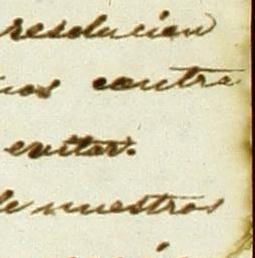 resolucion
nos contra
evitar.
de nuestros